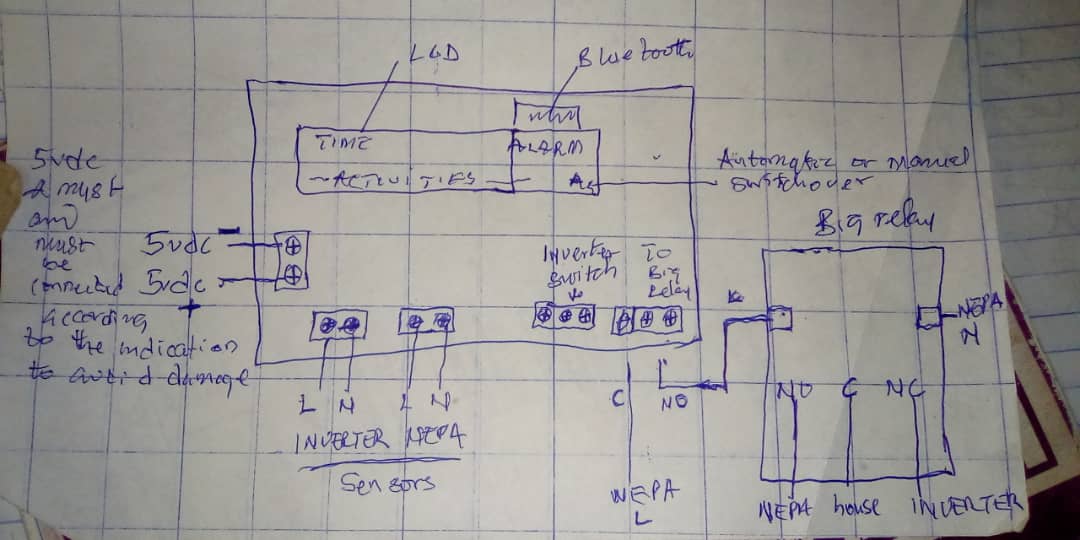 LCD
Bluetooth
TIME
ALARM
ACTIVITIES
Automatic or manual
switchover
5vdc
must
and
must
be
connected
according
to the indication
to avoid damage
5vdc -
5vdc +
Inverter
switch
TO
Big
Relay
L N L N
INVERTER NEPA
Sensors
C NO
NEPA
L
Big relay
NEPA
N
NO C NC
NEPA house INVERTER